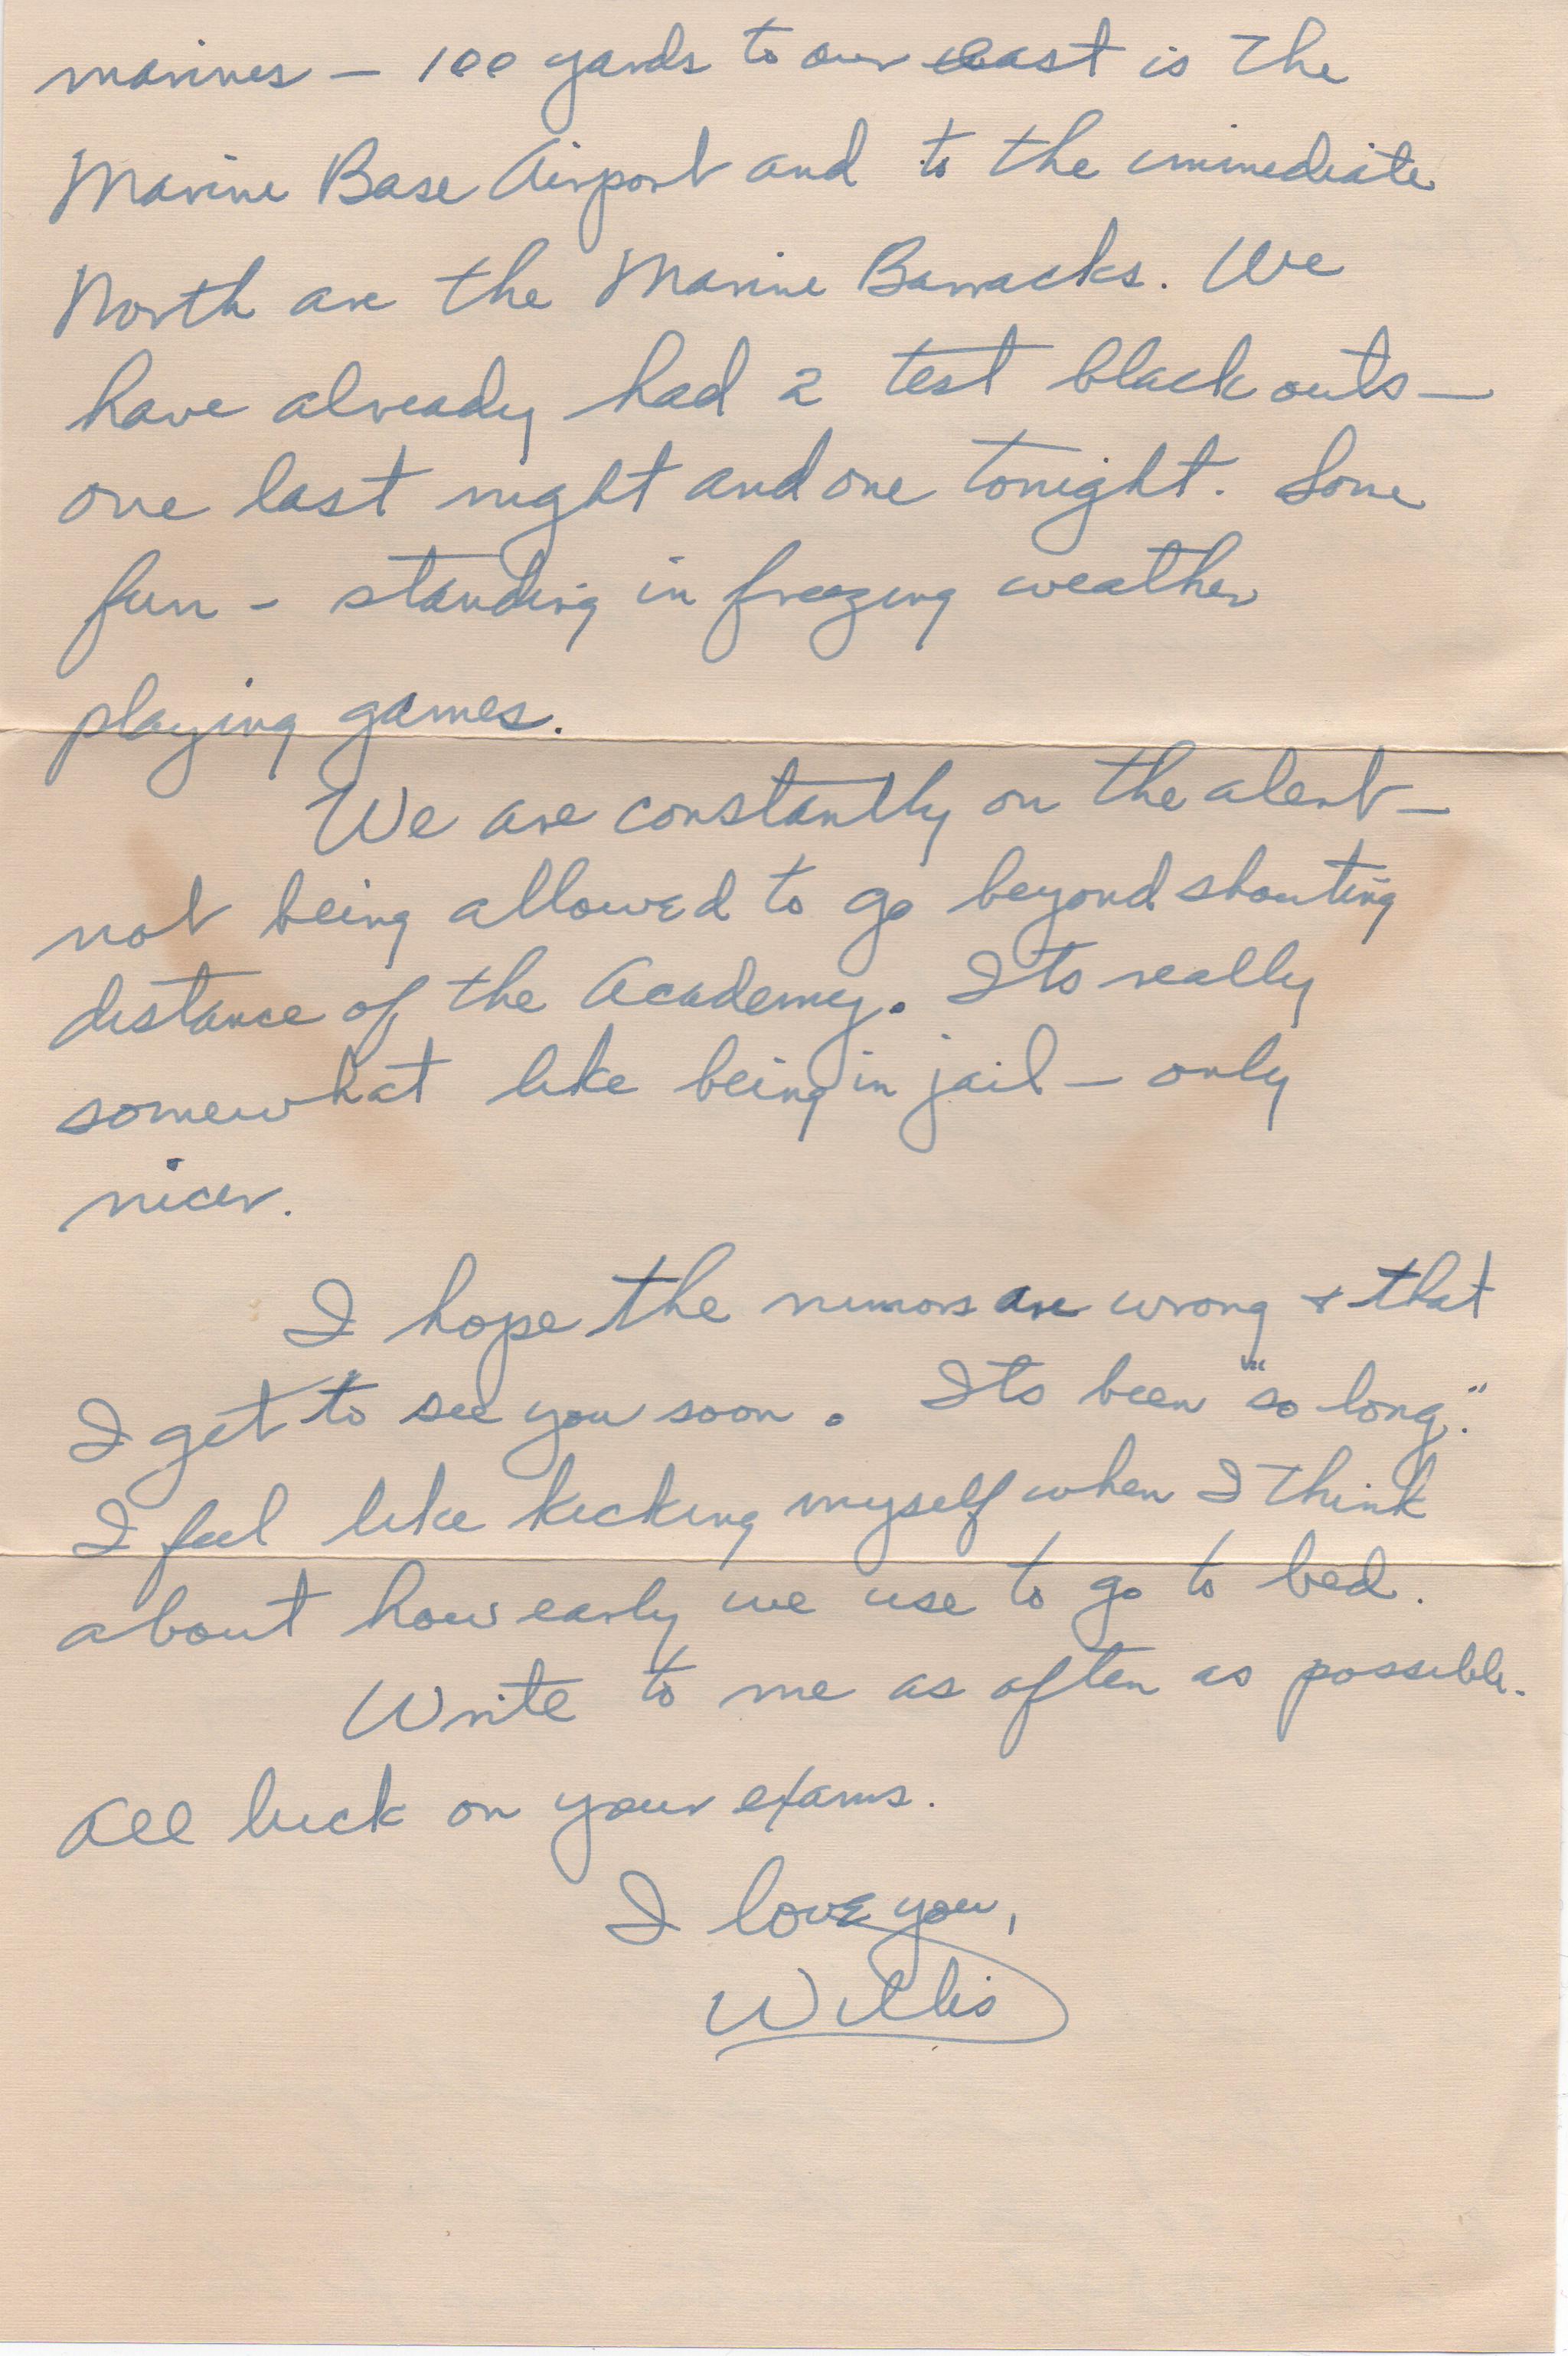 marines – 100 yards to our east is the
Marine Base Airport and to the immediate
North are the Marine Barracks. We
have already had 2 test black outs –
one last night and one tonight. Some
fun - standing in freezing weather
playing games.
We are constantly on the alert –
not being allowed to go beyond shouting
distance of the Academy. Its really
somewhat like being in jail – only
nicer.
I hope the rumors are wrong & that
I get to see you soon. Its been "so long."
I feel like kicking myself when I think
about how early we use to go to bed.
Write to me as often as possible.
All luck on your exams.
I love you,
Willis